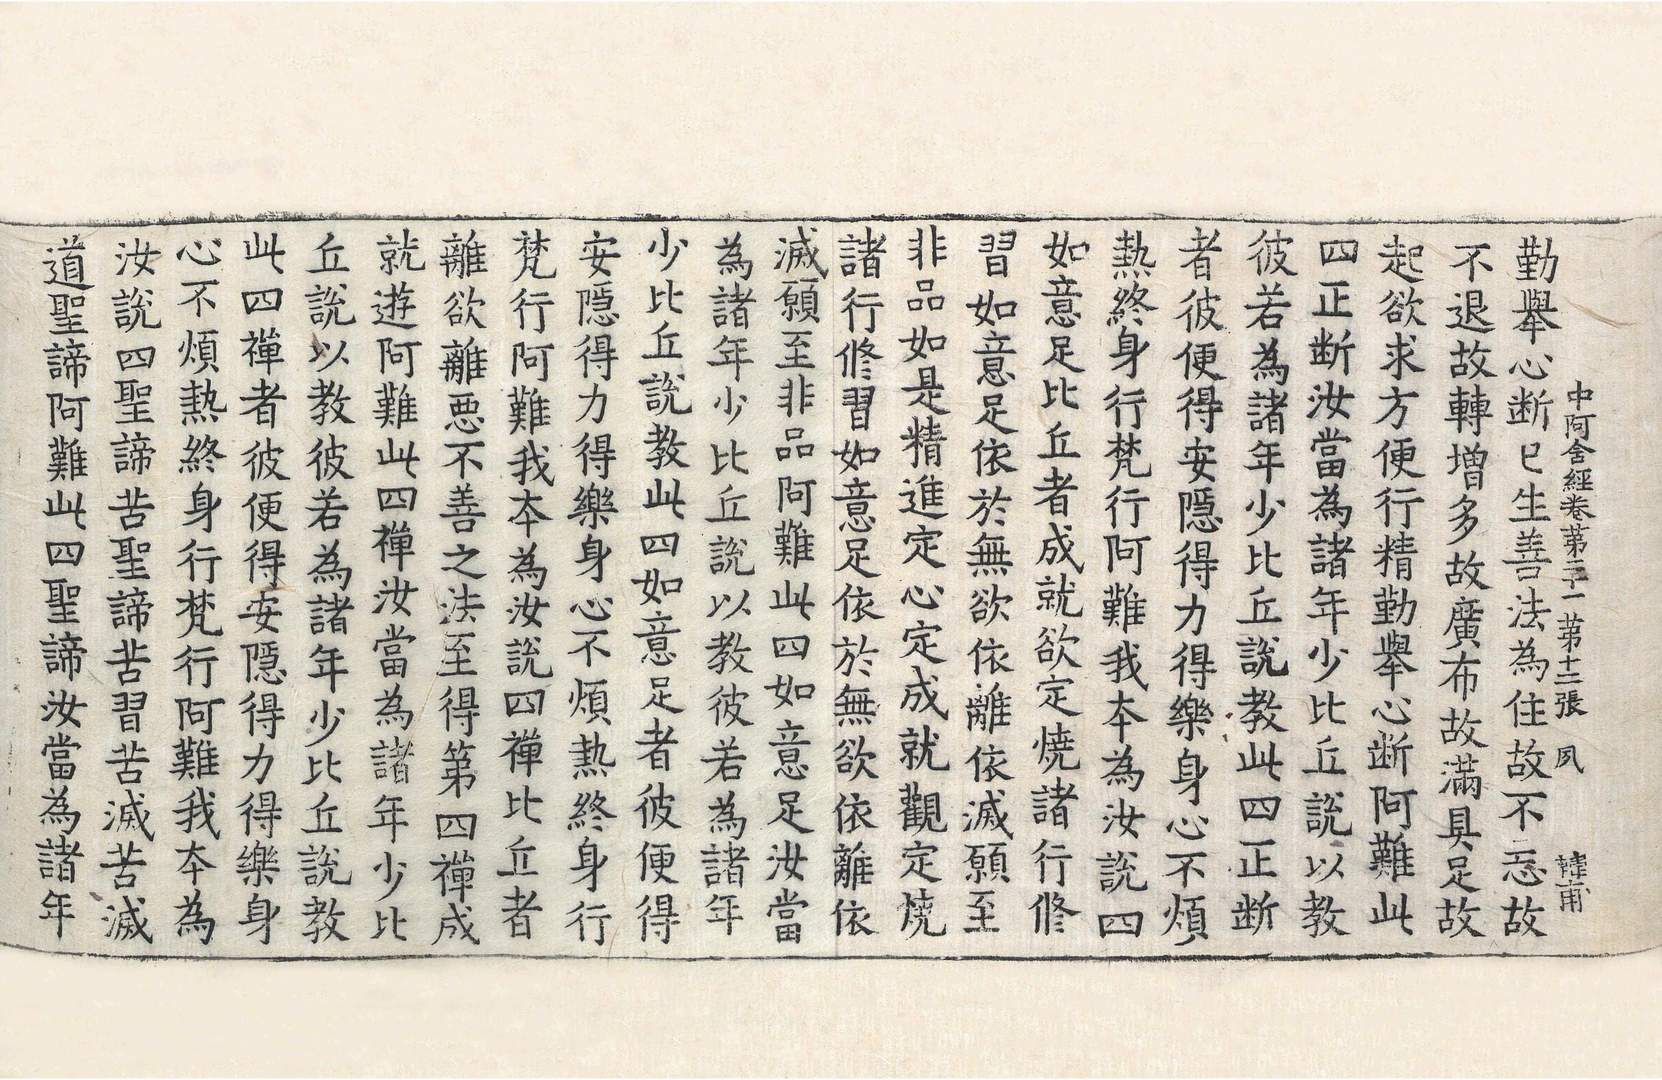 中阿含經卷第二十一 第十二張 夙 韓甫
勤舉心断已生善法為住故不忘故
不退故轉增多故廣布故滿具足故
起欲求方便行精勤舉心断阿難此
四正断汝當為諸年少比丘說以教
彼若為諸年少比丘說教此四正断
者彼便得安隱得力得樂身心不煩
熱終身行梵行阿難我夲為汝說四
如意足比丘者成就欲定燒諸行修
習如意足依於無欲依離依滅願至
非品如是精進定心定成就觀定燒
諸行修習如意足依於無欲依離依
滅願至非品阿難此四如意足汝當
為諸年少比丘說以教彼若為諸年
少比丘說教此四如意足者彼便得
安隱得力得樂身心不煩熱終身行
梵行阿難我夲為汝說四禪比丘者
離欲離惡不善之法至得第四禪成
就遊阿難此四禪汝當為諸年少比
丘說以教彼若為諸年少比丘說教
此四禪者彼便得安隱得力得樂身
心不煩熱終身行梵行阿難我夲為
汝說四聖諦苦聖諦苦習苦滅苦滅
道聖諦阿難此四聖諦汝當為諸年